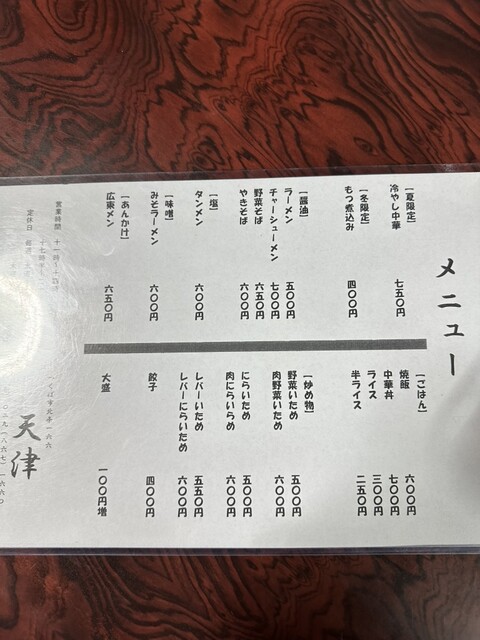 メニュー
【夏限定】
冷やし中華 七五〇円
【冬限定】
もつ煮込み 四〇〇円
【醤油】
ラーメン 五〇〇円
チャーシューメン 七〇〇円
野菜そば 六五〇円
やきそば 六〇〇円
【塩】
タンメン 六〇〇円
【味噌】
みそラーメン 六〇〇円
【あんかけ】
広東メン 六五〇円
【ごはん】
焼飯 六〇〇円
中華丼 七〇〇円
ライス 三〇〇円
半ライス 二五〇円
【炒め物】
野菜いため 五〇〇円
肉野菜いため 六〇〇円
にらいため 五〇〇円
肉にらいらめ 六〇〇円
レバーいため 五五〇円
レバーにらいため 六〇〇円
餃子 四〇〇円
大盛 一〇〇円増
営業時間 十一時
十七時半
定休日
つくば市北条一六六
天津